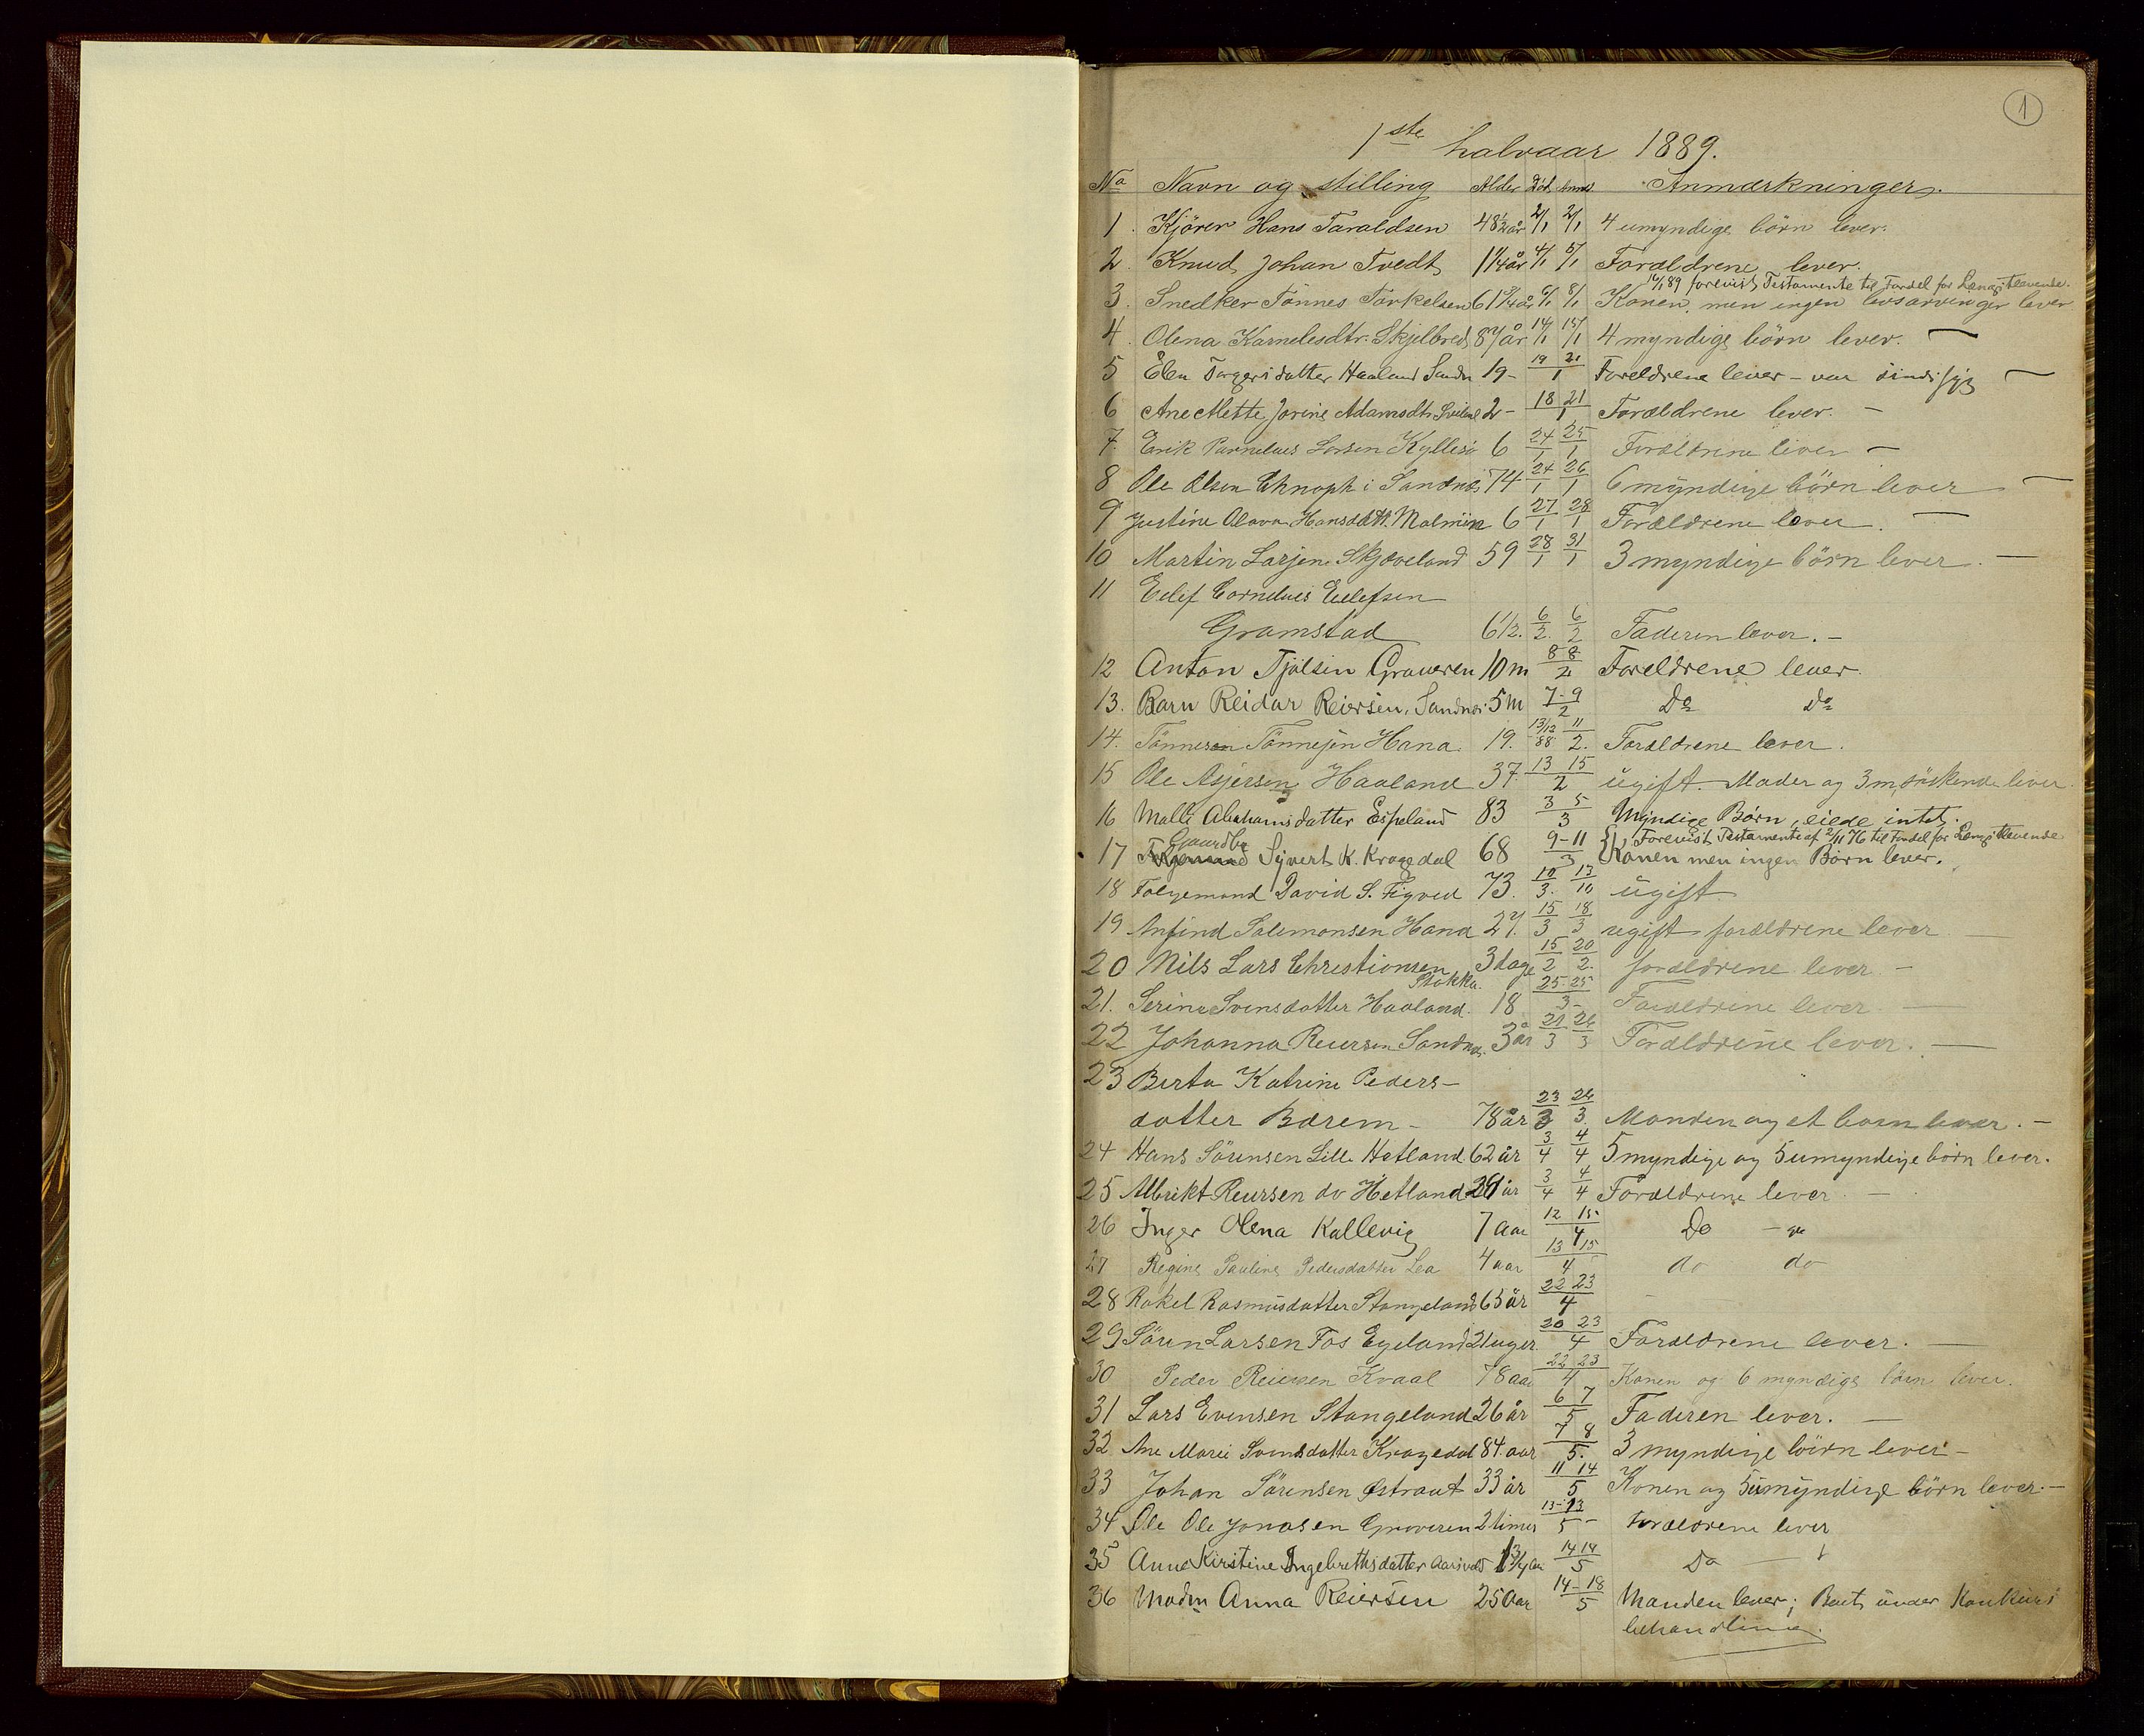 1
1ste halvaar 1889.
No Navn og stilling Alder Död Anm. Anmærkninger.
1. Kjører Hans Taraldsen 48 1/2 år 2/1 2/1 4 umyndige börn lever.
2. Knud Johan Tvedt 1 1/4 år 4/1 5/1 Forældrene lever.
12/1 89 forevist Testamente til Fordel for Længstlevende.
3. Snedker Tönnes Torkelsen 61 3/4 år 6/1 8/1 Konen, men ingen livsarvinger lever
4. Olena Kornelesdtr. Skjelbred 87 år 14/1 15/1 4 myndige börn lever. —
5 Elen Torgersdatter Haaland Sandn 19 - 19 21/1 Foreldrene lever - var sindssyg —
6 Ane Mette Jorine Adamsdtr. 2 - 18 21/1 Forældrene lever. -
7. Erik Larsen Kyllesö 6 24/1 25/1 Forældrene lever -
8 Ole Olsen i Sandnæs 74 24/1 26/1 6 myndige börn lever —
9 Justine Olava Hansdatt. Malmin 6 27/1 28/1 Forældrene lever. —
10 Martin Larsen Skjæveland 59 28/1 31/1 3 myndige börn lever. —
11 Eilef Cornelius Eilefsen
Gramstad 6 1/2. 6/2. 6/2 Faderen lever. -
12 Anton Tjölsen Graveren 10 m 8 8/2 Foreldrene lever.
13. Barn Reidar Reiersen, Sandnæs 5 m 7-9/2 Do Do
14. Tönnes Tönnesen Hana. 19. 13/12 88 11/2. Forældrene lever.
15 Ole Asjersen Haaland 37. 13 15/2 ugift. Moder og 3 m. söskende lever.
16 Malli Abrahamsdatter Espeland 83 3 5/3 Myndige Børn, eiede intet.
Gaardbr Forevist Testamente af 2/11 76 til Fordel for Længstlevende
17 Sivert K. Kragedal 68 9-11/3 Konen men ingen Børn lever.
18 Folgemand David S. Figved 73. 10/3. 13/10 ugift.
19 Anfind Salemonsen Hana 27. 15/3 18/3 ugift forældrene lever —
20 Nils Lars Christiansen 3 dage 15/2 20/2. forældrene lever -
Stokka.
21. Serine Svensdatter Haaland. 18 25-25/3- Forældrene lever —
22 Johanna Reiersen Sandnæs. 3 år 21/3 26/3 Forældrene lever. —
23 Berta Katrine Peders-
datter Bærem - 78 år 23/3 26/3. Manden og et barn lever. -
24 Hans Sörensen Lille Hetland 62 år 3/4 4/4 5 myndige og 5 umyndige börn lever.
25 Albrikt Reiersen do Hetland 28 år 3/4 4/4 Forældrene lever. —
26 Inger Olena Kallevig 7 aar 12 15/4 Do - do
27 Regine Pauline Pedersdatter Lea 4 aar 13 15/4 do do
28 Rakel Rasmusdatter Stangeland 65 år 22 23/4 -
29 Sörn Larsen Fos Egeland 21 uger 20 23/4 Forældrene lever. —
30 Peder Reiersen Kvaal 78 aar 22 23/4 Konen og 6 myndige börn lever.
31 Lars Evensen Stangeland 26 år 6 7/5 Faderen lever. —
32 Ane Marie Svendsdatter Kragedal 84. aar 7 8/5. 3 myndige börn lever -
33 Johan Sörensen Østraat 33 år 11 14/5 Konen og 5 umyndige börn lever. -
34 Ole Ole Jonasen Graveren 2 timer 13-13/5 - Forældrene lever
35 Anna Kirstine Ingebrethsdatter Aarsvold 1 3/4 aar 14 14/5 Do —
36 Madm Anna Reiersen 25 aar 14-18/5 Manden lever; Boet under Konkurs
behandling.